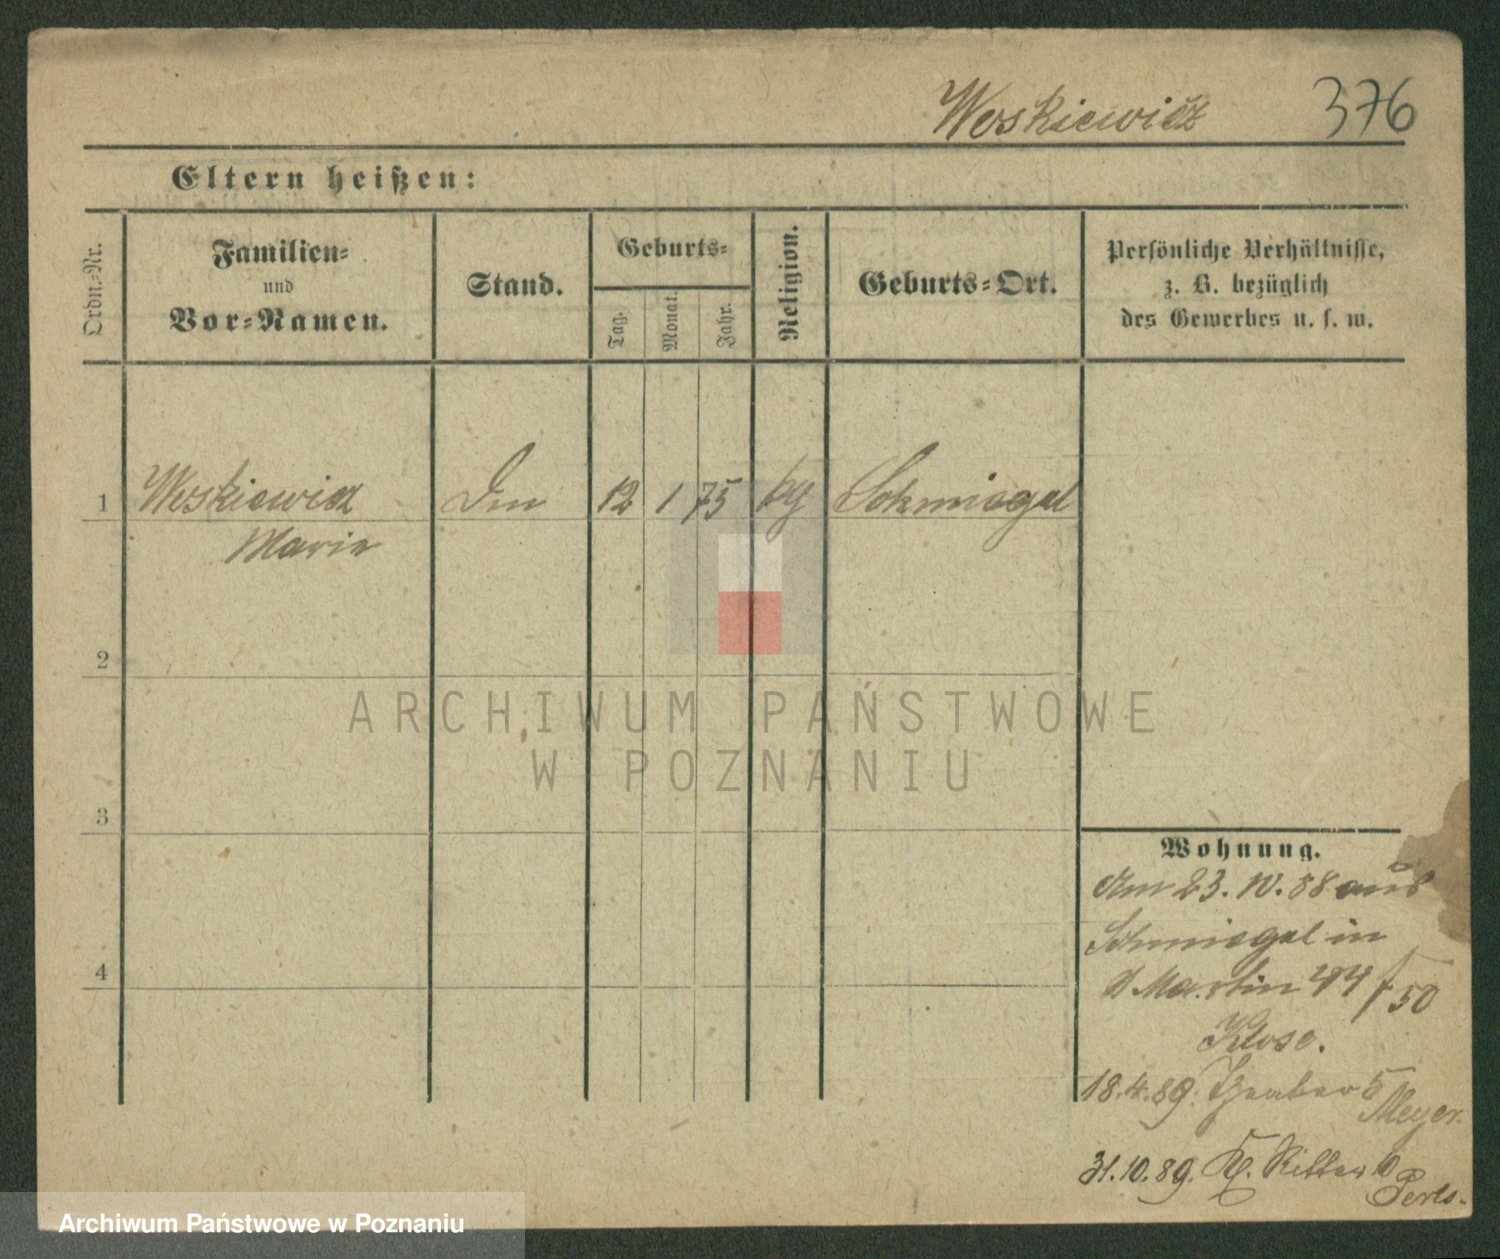 Woskiewicz 376
Eltern heißen:
Ordn.-Nr.
Familien-
und
Vor-Namen.
Stand.
Geburts-
Tag.
Monat.
Jahr.
Religion.
Geburts-Ort.
Persönliche Verhältnisse,
z. B. bezüglich
des Gewerbes u. s. w.
1 Woskiewicz 12 1 75 Schmiegel
Marie
2
3
4
ARCHIWUM PAŃSTWOWE
W POZNANIU
Wohnung.
Am 23. IV. 88 aus
Schmiegel in
Martin 44 50
Klose.
18.4.89. 5
Meyer.
31.10.89. Kl. Ritter 10
Perls.
Archiwum Państwowe w Poznaniu